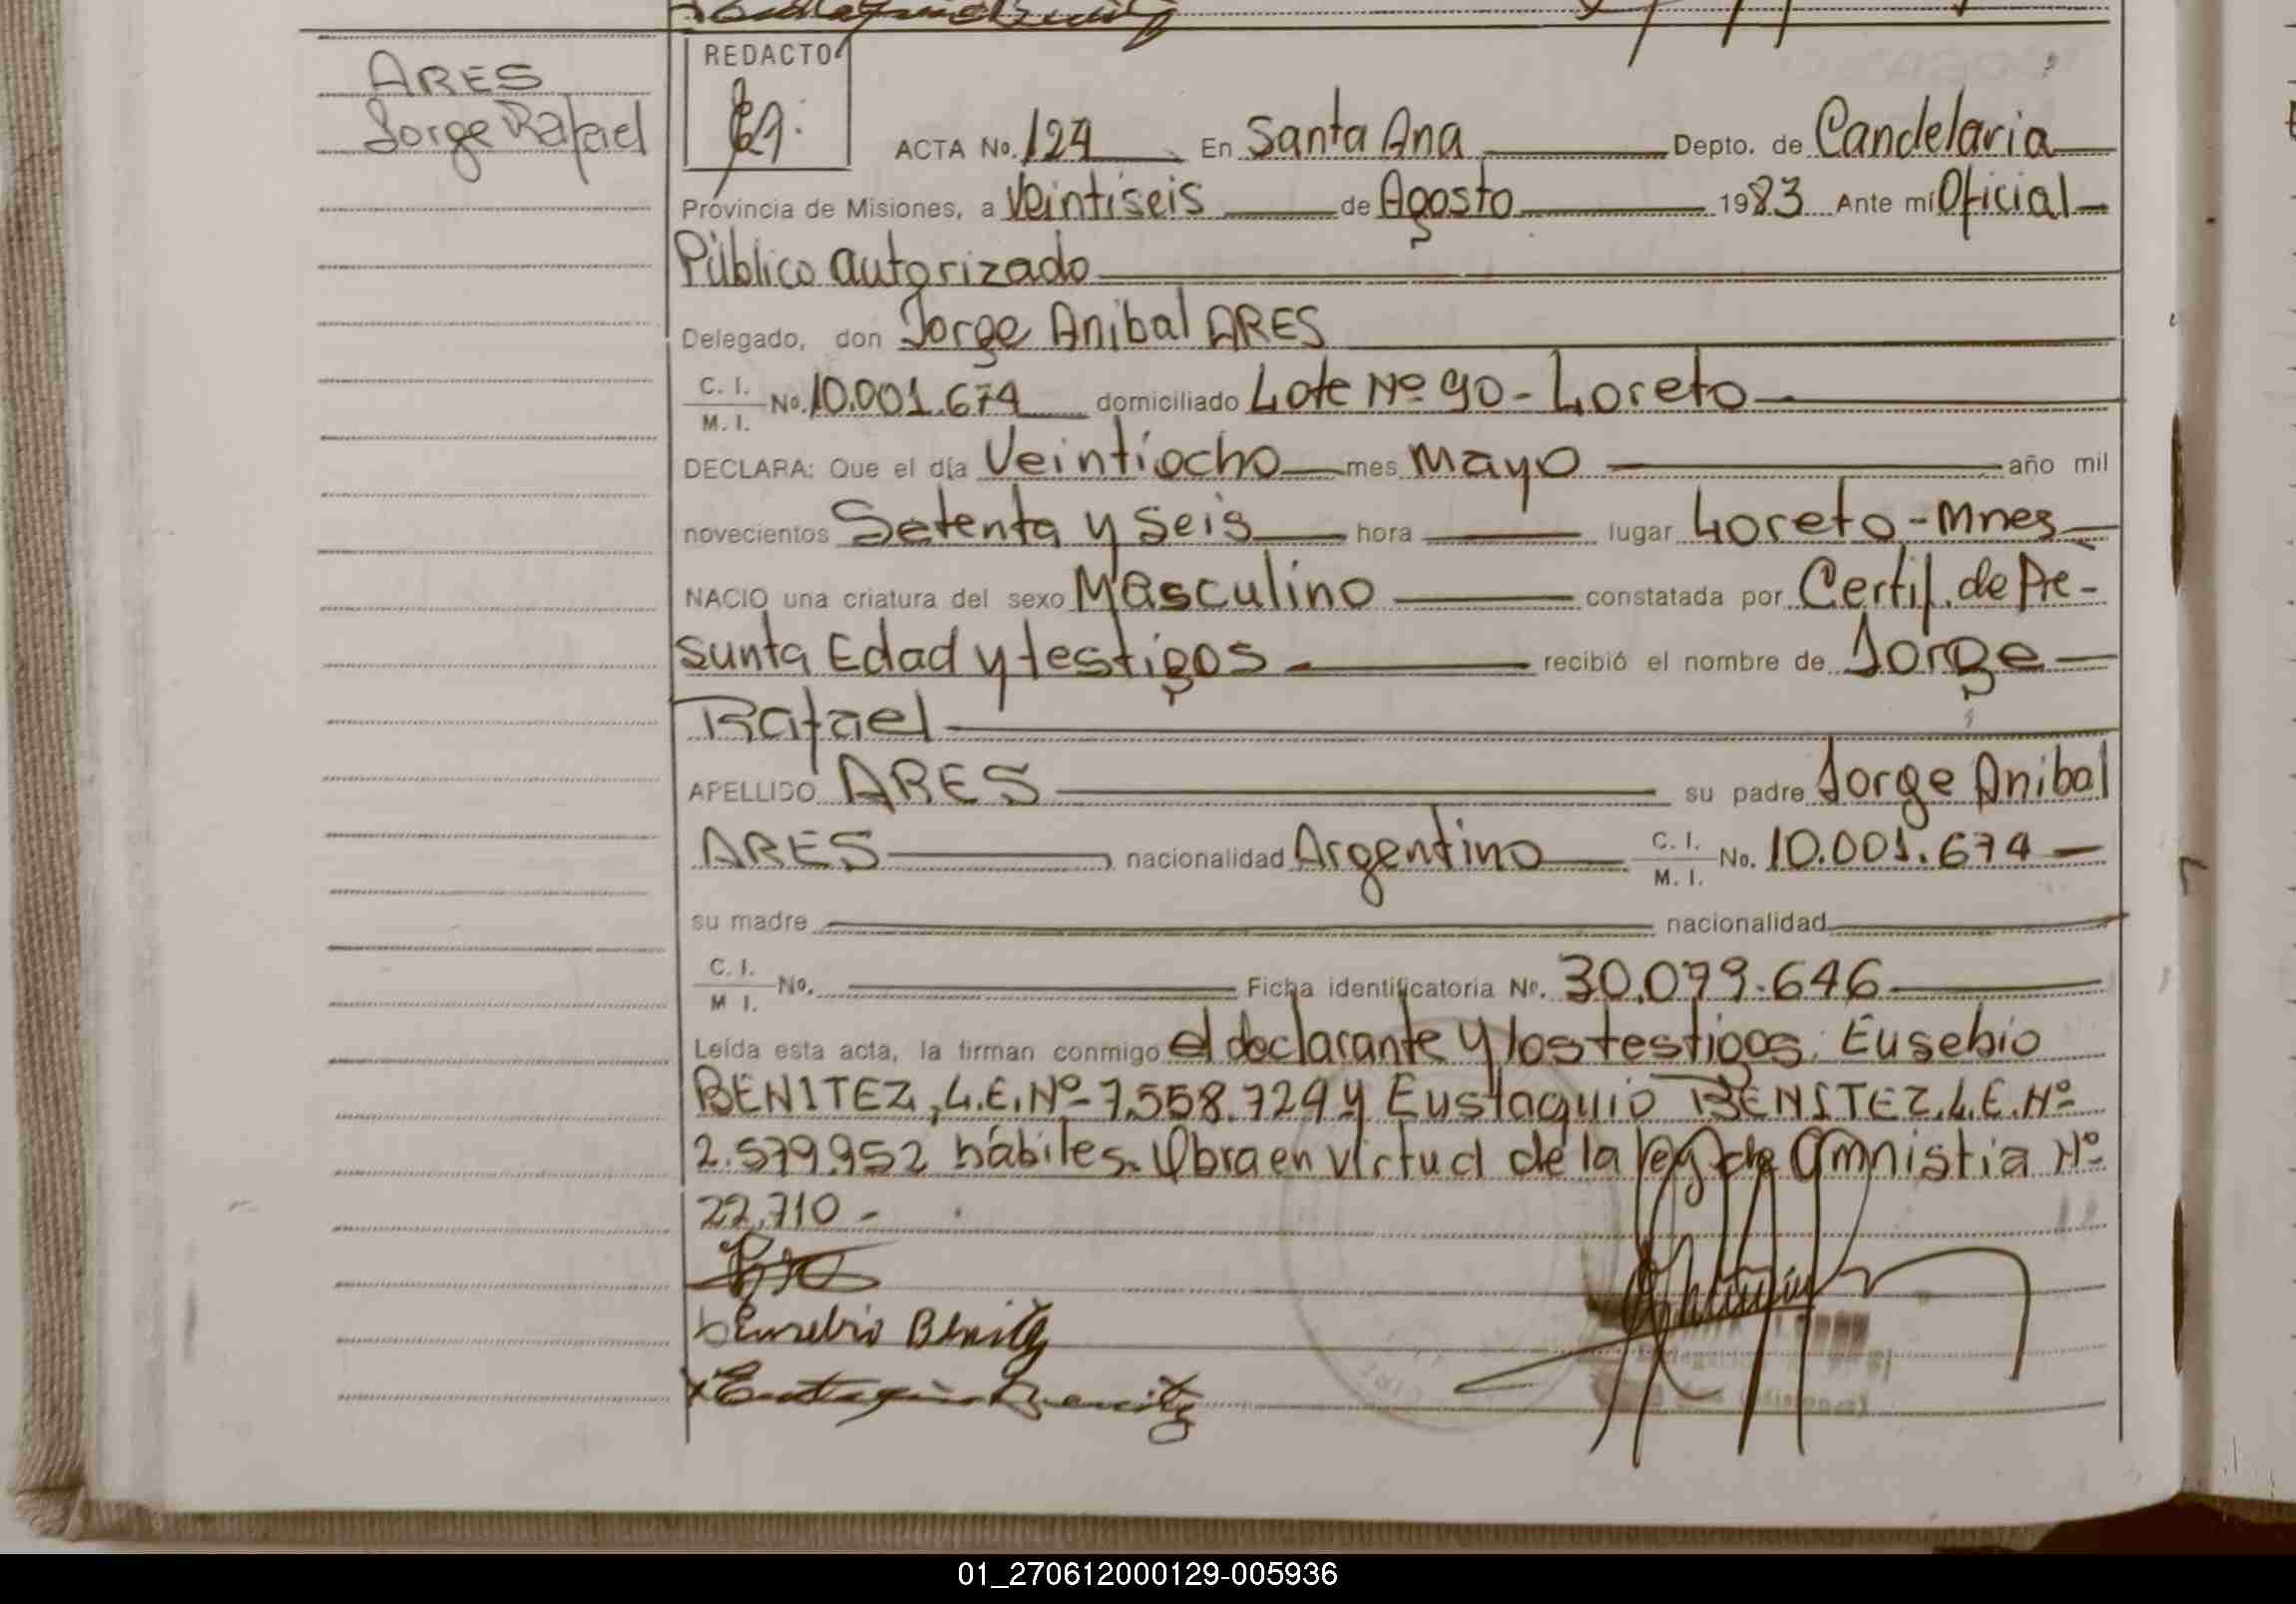 ARES
Jorge Rafael
REDACTO
ACTA No. 124 En Santa Ana Depto. de Candelaria
Provincia de Misiones, a Veintiseis de Agosto 1983 Ante mí Oficial
Público autorizado
Delegado, don Jorge Anibal ARES
C. I. / M. I. No. 10.001.674 domiciliado Lote Nº 90 - Loreto
DECLARA: Que el día Veintiocho mes Mayo año mil
novecientos Setenta y Seis hora lugar Loreto - Mnes
NACIO una criatura del sexo Masculino constatada por Certif. de Pre-
sunta Edad y testigos recibió el nombre de Jorge
Rafael
APELLIDO ARES su padre Jorge Anibal
ARES nacionalidad Argentino C. I. / M. I. No. 10.001.674
su madre nacionalidad
C. I. / M I. No. Ficha identificatoria No. 30.079.646
Leída esta acta, la firman conmigo el declarante y los testigos: Eusebio
BENITEZ, L.E. Nº 7.558.724 y Eustaquio BENITEZ. L.E. Nº
2.579.952 hábiles. Obra en virtud de la ley de Amnistia Nº
22.710 -
Eusebio Benitez
Eustaquio Benitez
01_270612000129-005936